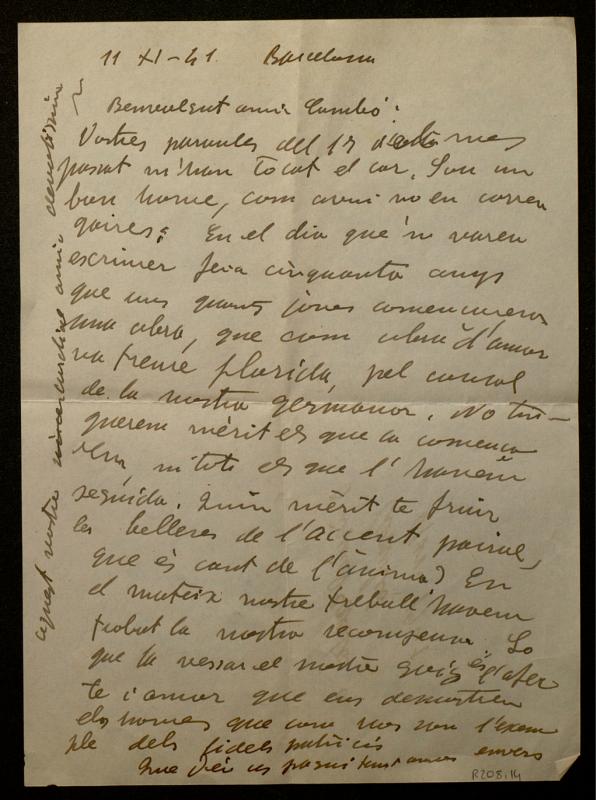 11 XI-41. Barcelona
Benvolgut amic Cambó:
Vostres paraules del 17 del mes
passat m'han tocat el cor. Son un
bon home, com avui no en corren
gaires. En el dia que'm varen
escriurer feia cinquanta anys
que uns quants joves comencaren
una obra, que com obra d'amor
va treure florida, pel consol
de la nostra germanor. No tin-
guerem mèrit els que la comença
rem, ni tots els que l'havem
seguida. Quin mèrit te fruir
les belleses de l'accent pairal,
que és cant de l'ànima? En
el mateix nostre treball havem
trobat la nostra recompensa. Lo
que fa vessar el nostre goig és l'afec
te i amor que ens demostren
els homes que com vos son l'exem
ple dels fidels patricis
Que Déu us pagui tant amor envers
aquest vostre amic devotíssim
R208.14